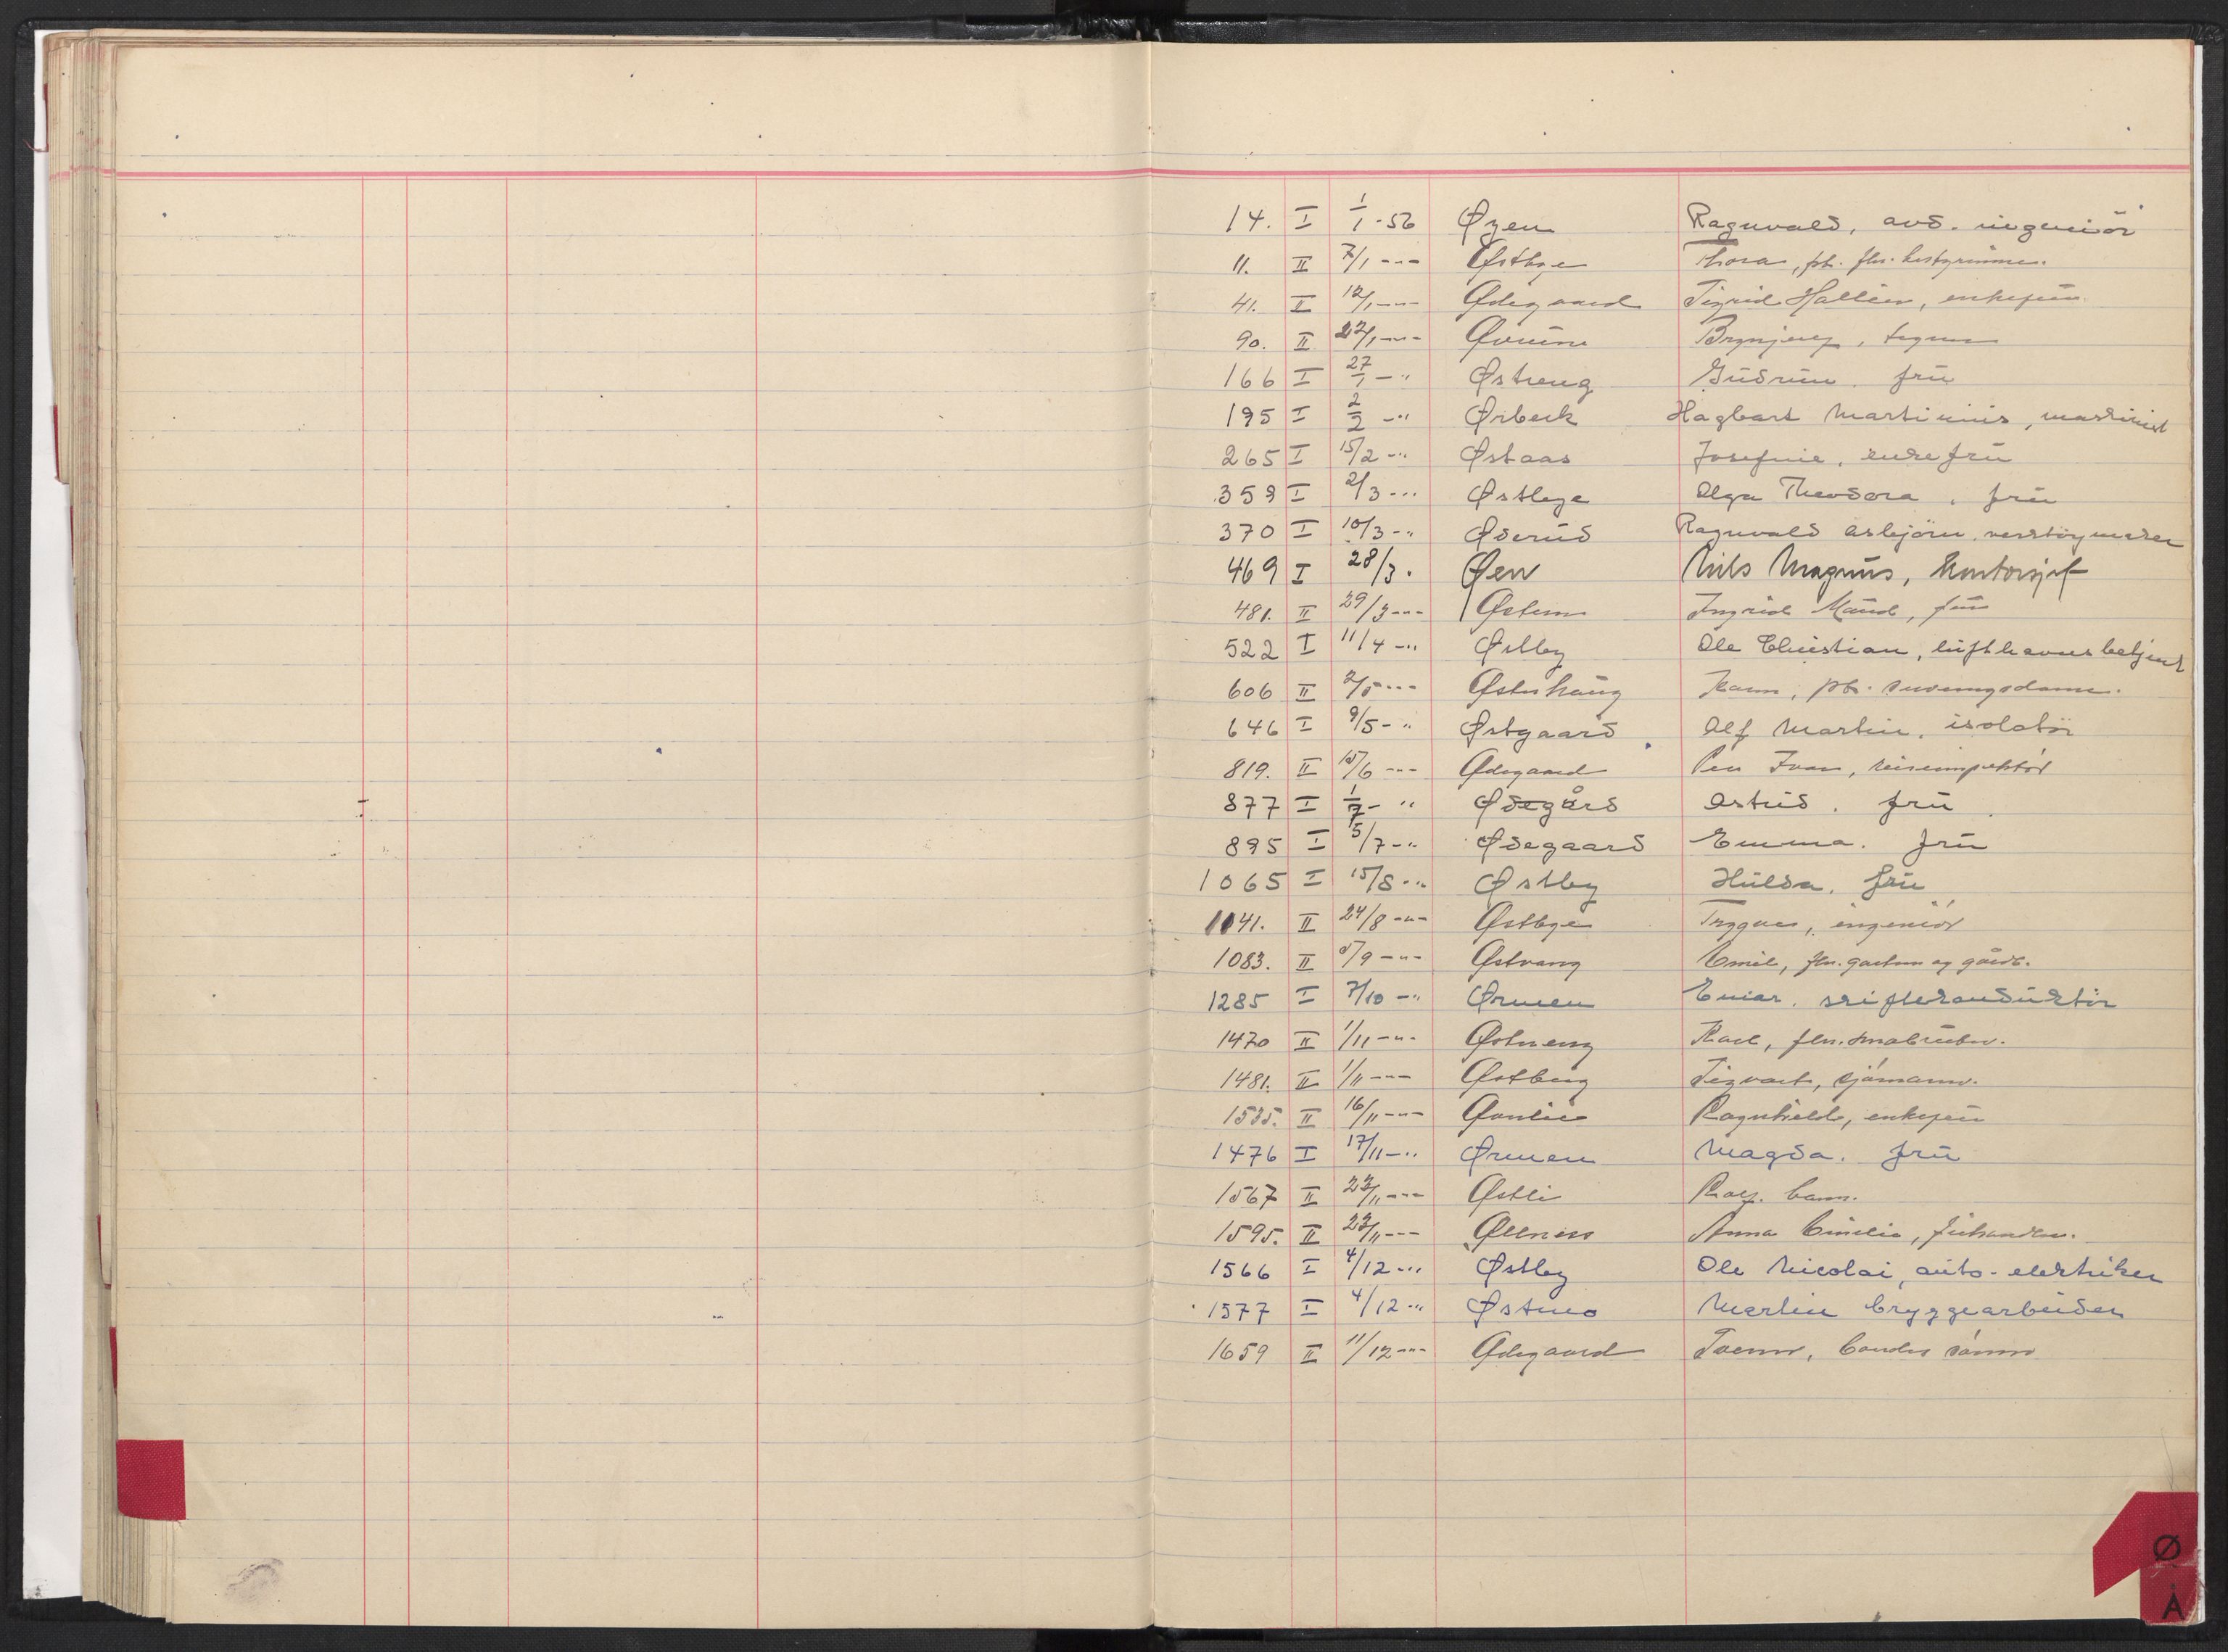 14. I 1/1-56 Øzen Ragnvald, avd. ingeniör
11. II 7/1 -"- Østbye Thora, pb. fhv. bestyrinne.
41. II 12/1 -"- Ødegaard Sigrid Hallén, enkefru
90. II 22/1 -"- Brynjulf, tegner
166 I 27/1 -" Østreng Gudrun. frü
195 I 2/2 -" Ørbeck Hagbart Martinius, maskinist
265 I 15/2 -" Østaas Josefine, enkefrü
359 I 2/3 -" Østbye Olga Theodora, früe
370 I 10/3 -" Øderud Ragnvald Asbjörn, verktöymaker
469 I 28/3. Øen Nils Magnus, Kontorsjef
481. II 29/3 -"- Østern Ingrid Maud, fru
522 I 11/4 -" Østby Ole Christian, lufthavnsbetjent
606 II 2/5 -"- Østerhaug Karen, pb.
646 I 9/5 -" Østgaard Alf Martin, isolatör
819. II 15/6 -"- Ødegaard Per Ivar, reiseinspektör
877 I 1/7 - " Ødegård Astrid. frü
895 I 5/7 -" Ødegaard Emma. frü
1065 I 15/8 -" Østby Hulda, frü
1141. II 24/8 -"- Østbye Trygve, ingeniör
1083. II 5/9 -"- Østvang Emil, fhv. gartner og gårdb.
1285 I 7/10 -" Ørmen Einar. skiftekonduktör
1470 II 1/11 -"- Østreng Karl, fhv. småbruker.
1481. II 1/11 -"- Østberg Sigvart, sjömann.
1535. II 16/11 -"- Ragnhild, enkefru
1476 I 17/11 -" Ørmen Magda. frü
1567 II 22/11 -"- Østli Rolf. barn.
1595. II 23/11 -"- Øllness Anna Emilie,
1566 I 4/12 -" Østby Ole Nicolai, auto-elektriker
1577 I 4/12 -" Østmo Martin bryggearbeider
1659 II 11/12 -"- Ødegaard
Ø
Å